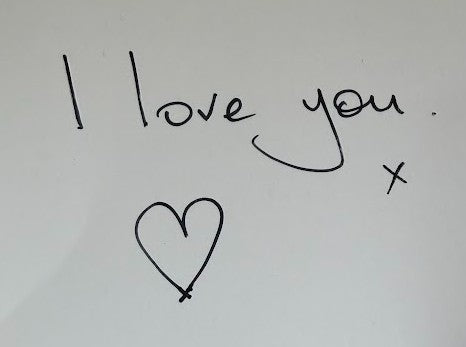 I love you.
x